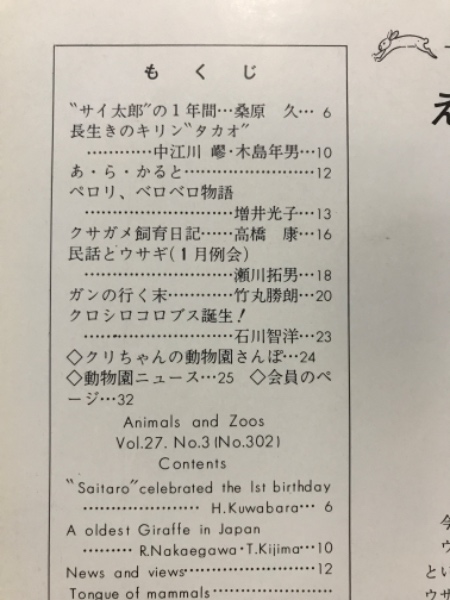 もくじ
"サイ太郎"の1年間…桑原 久… 6
長生きのキリン"タカオ"
…………中江川 㟢・木島年男…10
あ・ら・かると……………………12
ペロリ、ベロベロ物語
………………………増井光子…13
クサガメ飼育日記……高橋 康…16
民話とウサギ(1月例会)
………………………瀬川拓男…18
ガンの行く末…………竹丸勝朗…20
クロシロコロブス誕生!
………………………石川智洋…23
◇クリちゃんの動物園さんぽ…24
◇動物園ニュース…25 ◇会員のペ
ージ…32
Animals and Zoos
Vol.27. No.3(No.302)
Contents
"Saitaro"celebrated the 1st birthday
………………… H.Kuwabara… 6
A oldest Giraffe in Japan
……… R.Nakaegawa・T.Kijima…10
News and views………………12
Tongue of mammals………………
え
今
ウ
とい
ウサ